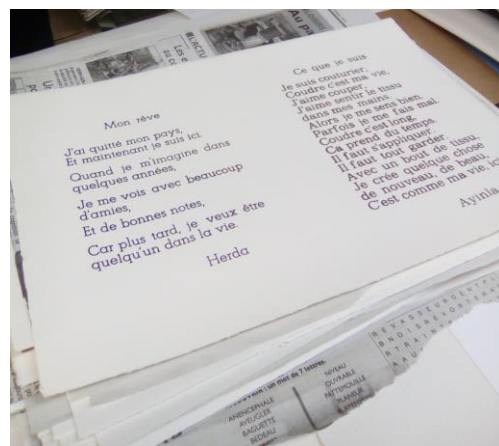 Mon rêve
J'ai quitté mon pays,
Et maintenant je suis ici.
Quand je m'imagine dans
quelques années,
Je me vois avec beaucoup
d'amies,
Et de bonnes notes,
Car plus tard, je veux être
quelqu'un dans la vie.
Herda
Ce que je suis
Je suis couturier,
Coudre c'est ma vie,
J'aime couper,
J'aime sentir le tissu
dans mes mains.
Alors je me sens bien.
Parfois je me fais mal.
Coudre c'est long,
Ca prend du temps.
Il faut s'appliquer.
Il faut tout garder.
Avec un bout de tissu,
Je crée quelque chose
de nouveau, de beau,
C'est comme ma vie,
Ayinle
L'ACTU
Au
un mot de 7 lettres.
ANENCEPHALE
AVEUGLER
BAGUETTE
BEDEAU
NIVEAU
OUVRABLE
PATTEMOUILLE
PLANEUR